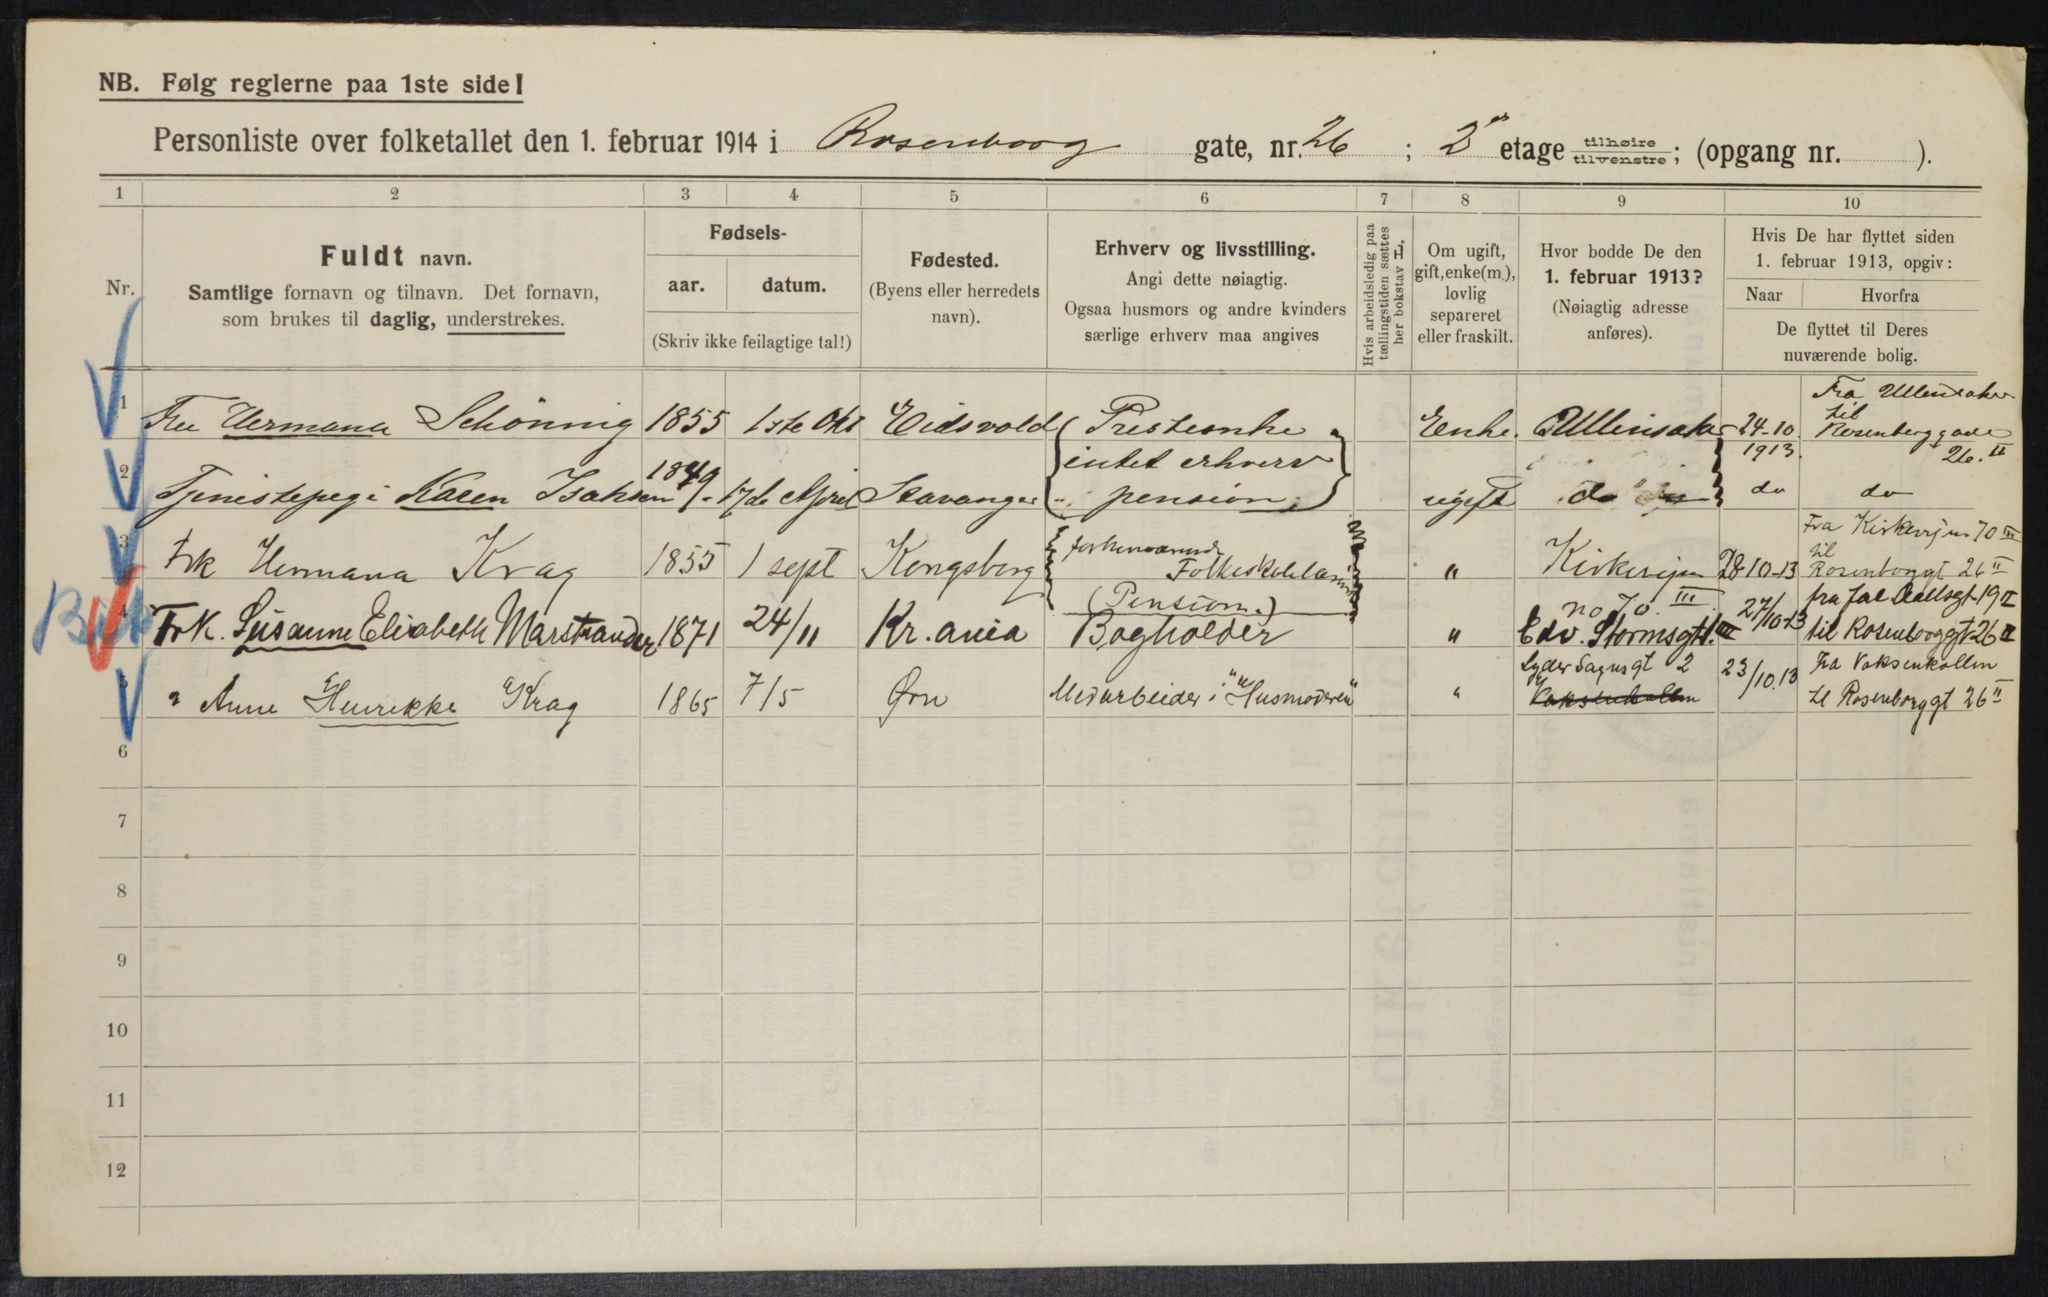 NB. Følg reglerne paa 1ste side!
Personliste over folketallet den 1. februar 1914 i Rosenborg gate, nr. 26 ; 2 etage tilhøire tilvenstre; (opgang nr. ).
1 2 3 4 5 6 7 8 9 10
Nr.
Fuldt navn.
Samtlige fornavn og tilnavn. Det fornavn,
som brukes til daglig, understrekes.
Fødsels-
aar. datum.
(Skriv ikke feilagtige tal!)
Fødested.
(Byens eller herredets
navn).
Erhverv og livsstilling.
Angi dette nøiagtig.
Ogsaa husmors og andre kvinders
særlige erhverv maa angives
Hvis arbeidsledig paa
tællingstiden sættes
her bokstav L,
Om ugift,
gift, enke(m.),
lovlig
separeret
eller fraskilt.
Hvor bodde De den
1. februar 1913?
(Nøiagtig adresse
anføres).
Hvis De har flyttet siden
1. februar 1913, opgiv:
Naar Hvorfra
De flyttet til Deres
nuværende bolig.
1 Fru Hermana Schönning 1855 1ste Okt Eidsvold (Presteenke intet erhverv pension) Enke. Ullensaker 24-10 1913. Fra Ullensaker til Rosenborggade 26. II
2 Tjenestepige Karen Isaksen 1849 17de April Stavanger " ugift do do do
3 Frk Hermana Krag 1855 1 sept Kongsberg forhenværende Folkeskolelærer (Pension.) " Kirkevejen no 70 III 28-10-13 Fra Kirkevejen 70 III til Rosenborggt 26 II
4 Frk. Susanne Elisabeth Marstrander 1871 24/11 Kr.ania Bogholder " Edv. Stormsgt 1. III 27/10-13 fra Jac Aallsgt 19 II til Rosenborggt 26 II
5 " Anne Henrikke Krag 1865 7/5 Ørn Medarbeider i "Husmoderen" " Lyder Sagnsgt 2 Voksenkollen 23/10.13 fra Voksenkollen til Rosenborggt 26 II
6
7
8
9
10
11
12